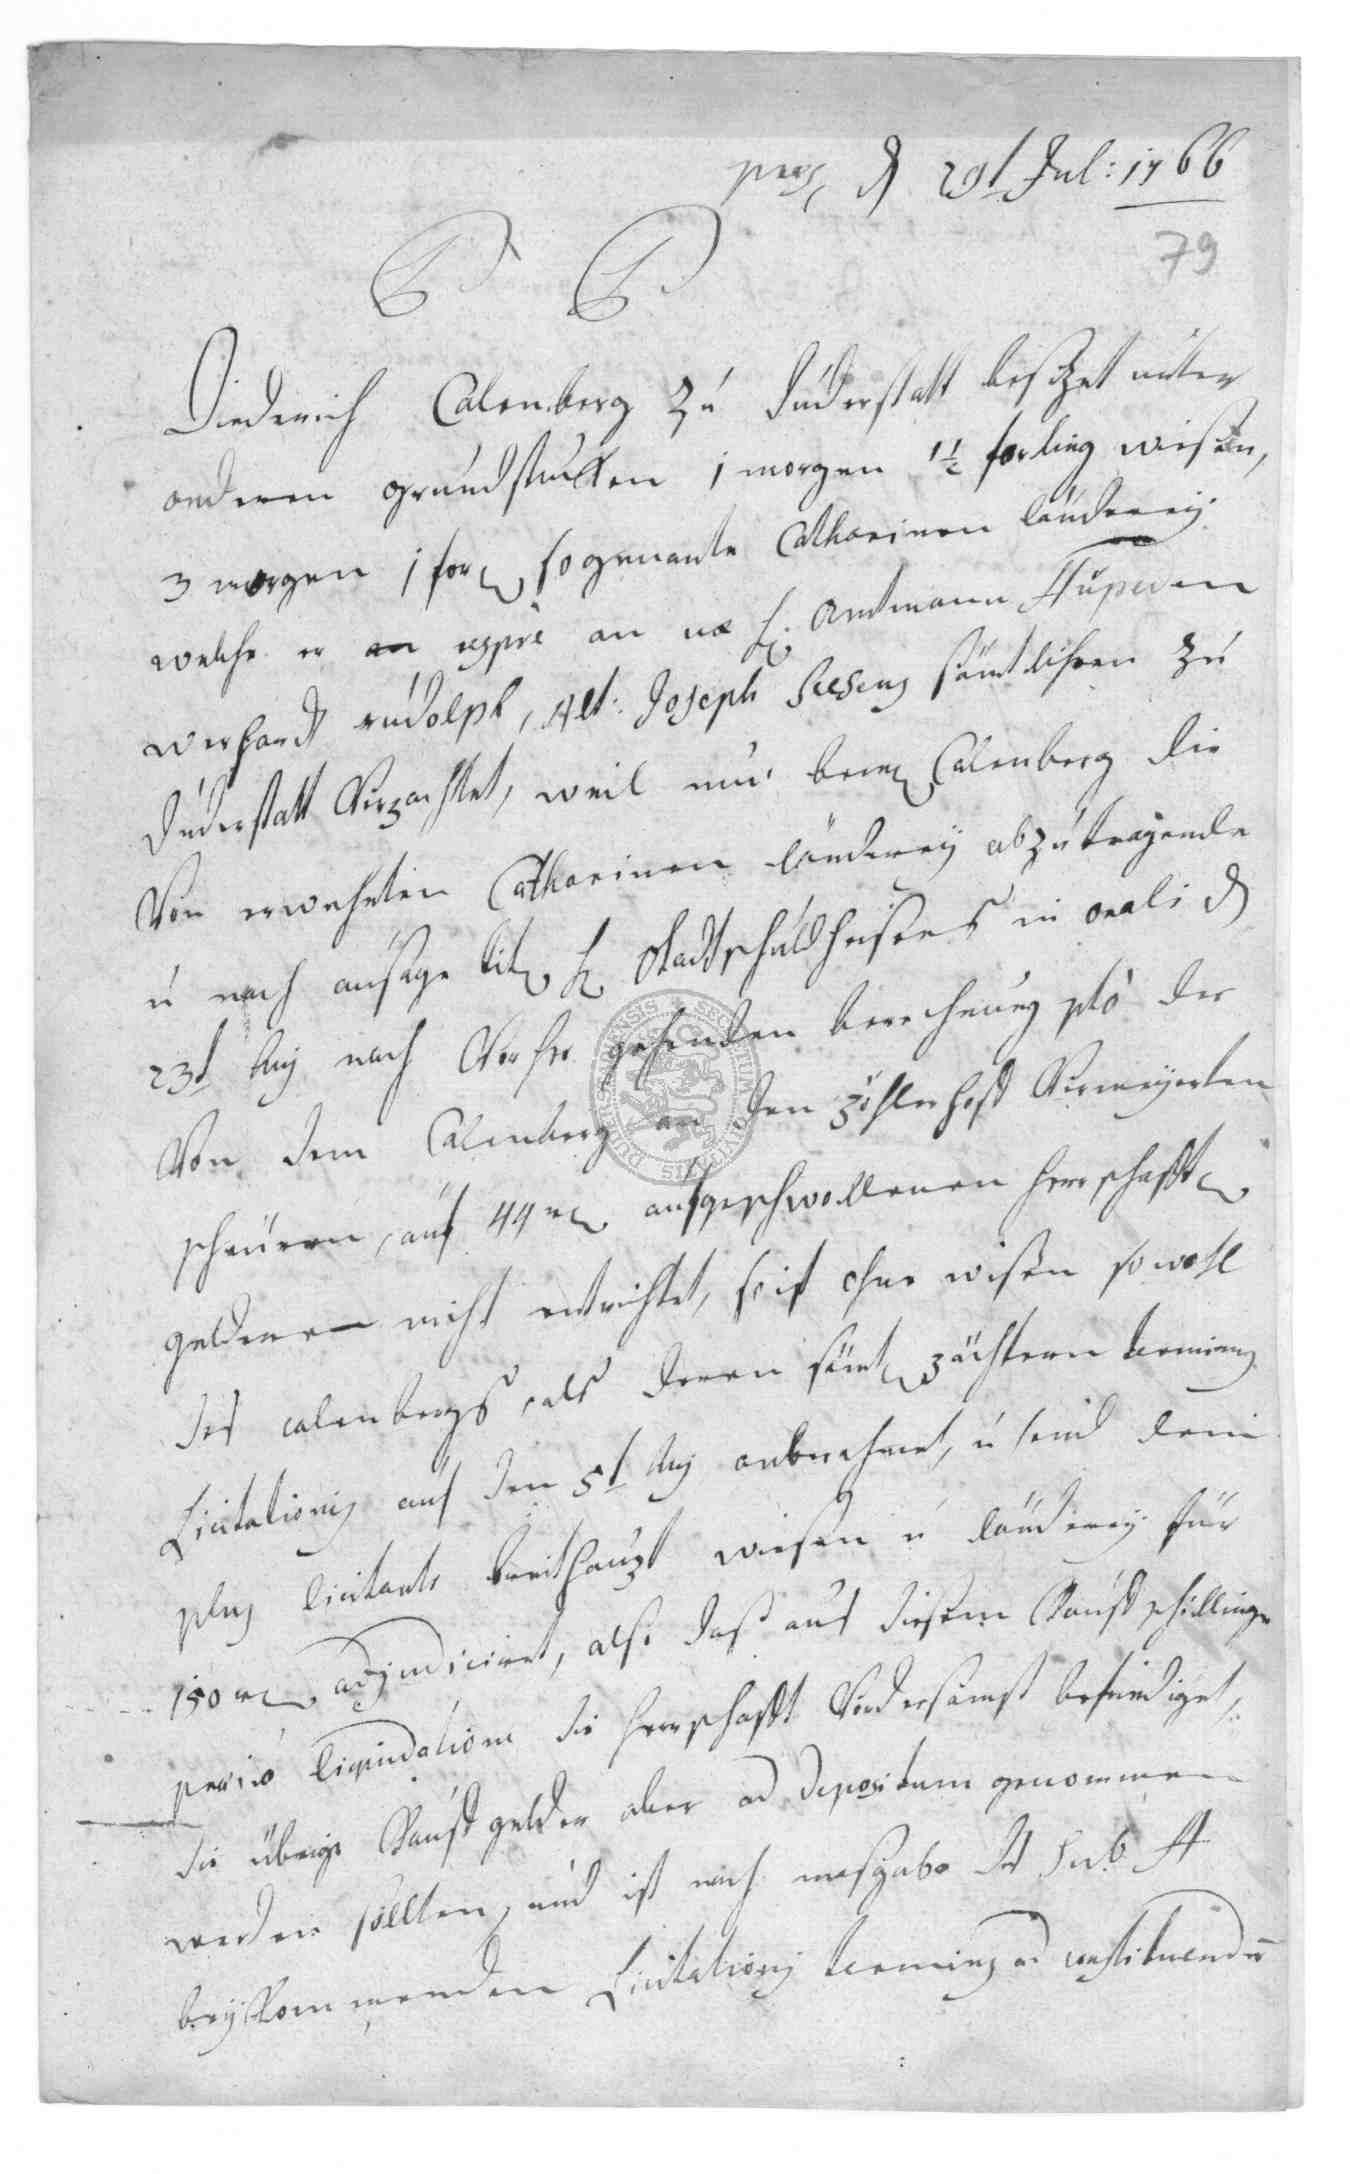 præs. d 29t Jul: 1766
79
P P
Diederich Calenberg zu Duderstatt besitzet unter
anderen grundstucken 1 morgen 1½ forling wiesen,
3 morgen 1 forl sogenante Catharinen länderey
welche er an respve an H. Amtmann Hupeden
rudolph, Joseph sämtlichen zu
Duderstatt Verpachtet, weil nun Calenberg die
Von erwehnten Catharinen länderey abzutragende
u nach aussage tit H Stadtschuldheisens in d
23t huj nach Vorher gehenden berechnung pto der
Von dem Calenberg an den Vermeyerten
scheuren, auf 44 rl aufgeschwollenen herrschafftl
gelderen nicht entrichtet, so ist ohne wissen sowohl
des calenbergs, als deren sämtl pächtern terminus
Licitationis auf den 5t huj anberahmet, u sind dem
plus licitante breithaupt wiesen u länderey für
150 rl adjudiciret, also daß aus diesem Kaufschillinge
prævio liquidatione die herrschafft Vordersamst befriediget,
die übrige Kaufgelder aber ad depositum genommen
werden sollten, und ist nach masgabe des sub A
beykommenden Licitationis terminus ad constituendu